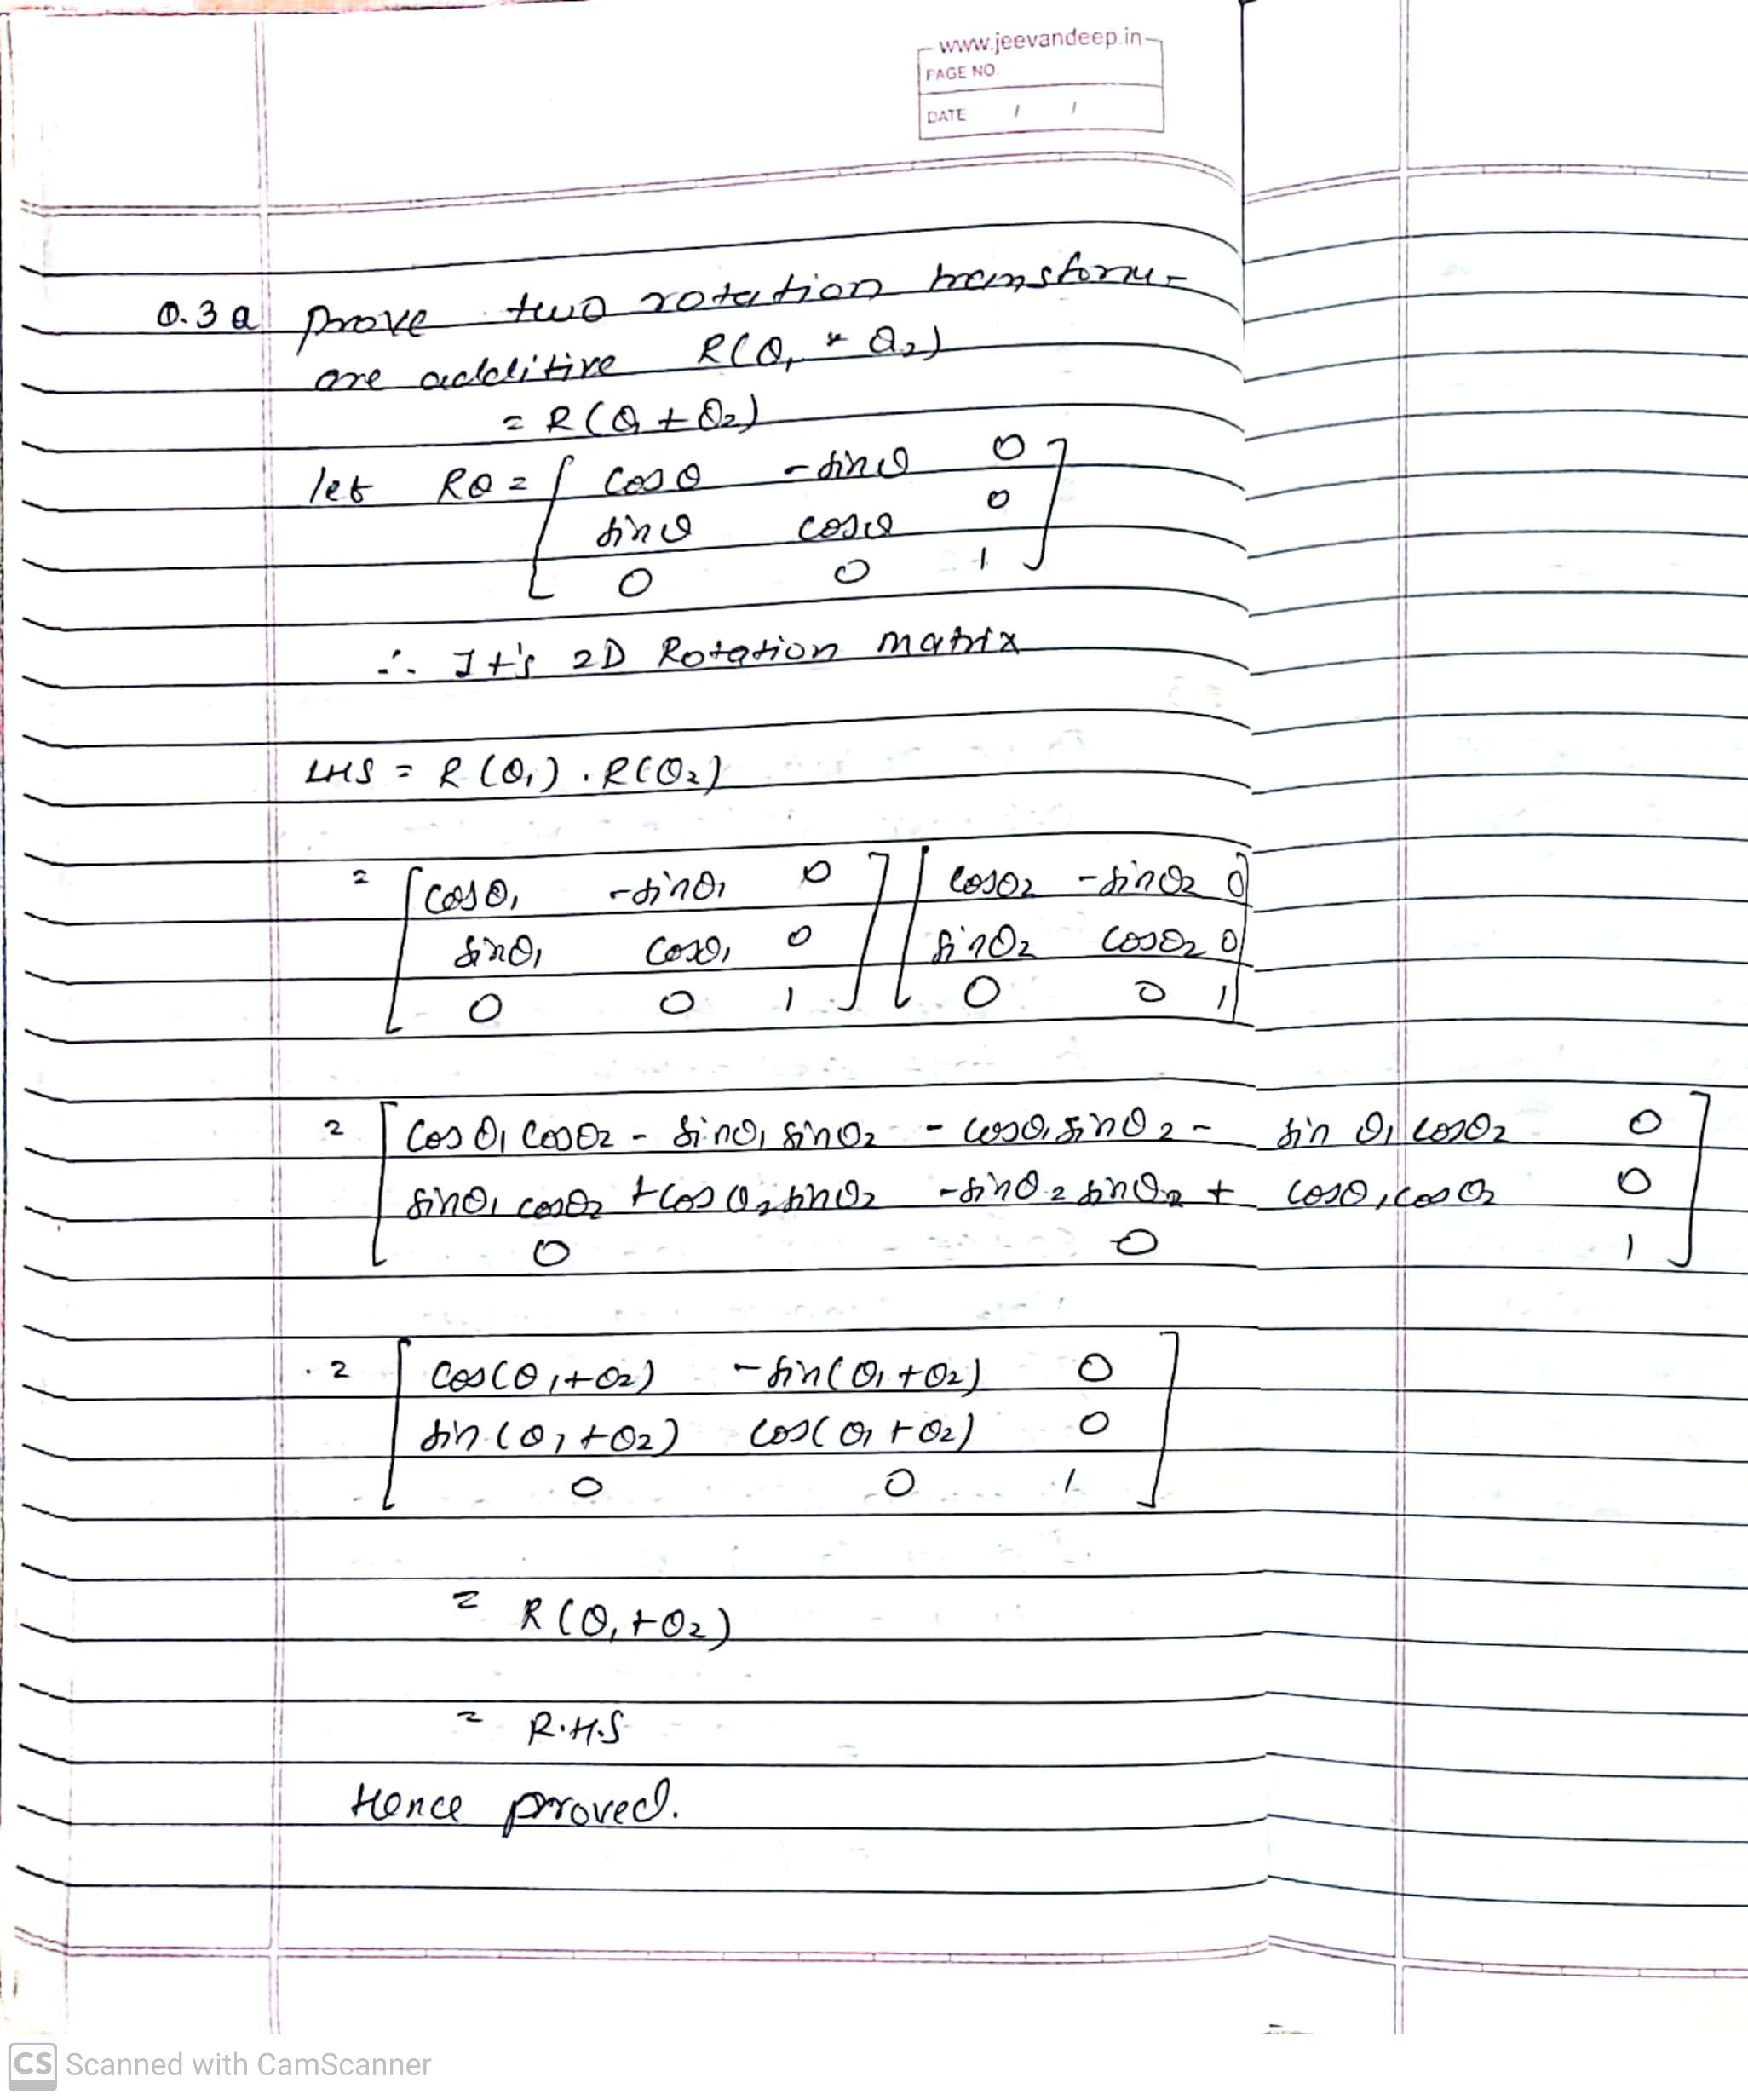 www.jeevandeep.in
PAGE NO.
DATE / /
Q.3 a prove two rotation transform-
are additive R(θ₁ * θ₂)
= R(θ₁ + θ₂)
let Rθ = [ cosθ -sinθ 0
sinθ cosθ 0
0 0 1 ]
∴ It's 2D Rotation matrix
LHS = R(θ₁) . R(θ₂)
= [ cosθ₁ -sinθ₁ 0 ] [ cosθ₂ -sinθ₂ 0
sinθ₁ cosθ₁ 0 sinθ₂ cosθ₂ 0
0 0 1 ] [ 0 0 1 ]
= [ cosθ₁ cosθ₂ - sinθ₁ sinθ₂ - cosθ₁ sinθ₂ - sin θ₁ cosθ₂ 0
sinθ₁ cosθ₂ + cosθ₂ sinθ₂ -sinθ₂ sinθ₂ + cosθ₁ cosθ₂ 0
0 0 1 ]
= [ cos(θ₁+θ₂) -sin(θ₁+θ₂) 0
sin(θ₁+θ₂) cos(θ₁+θ₂) 0
0 0 1 ]
= R(θ₁+θ₂)
= R.H.S
Hence proved.
CS Scanned with CamScanner